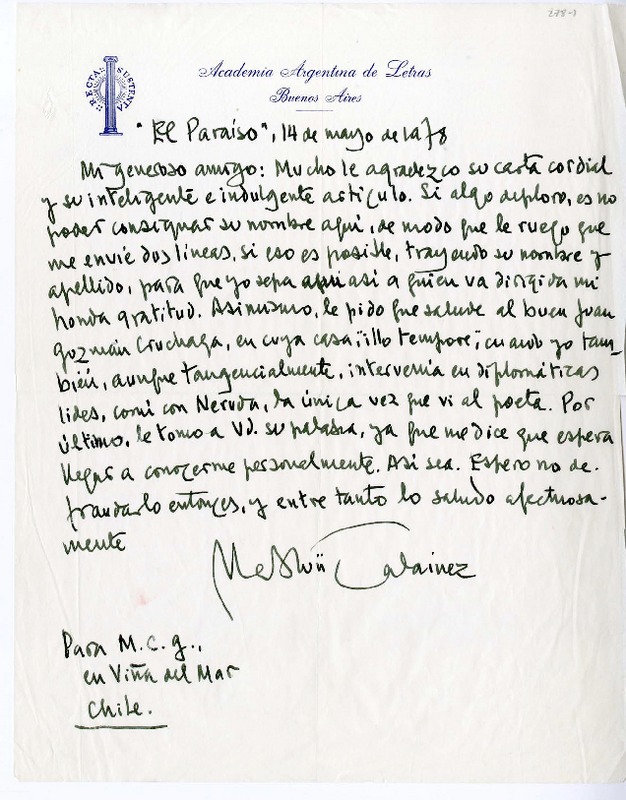 278-1
Academia Argentina de Letras
Buenos Aires
RECTA SUSTENTA
"El Paraíso", 14 de mayo de 1978
Mi generoso amigo: Mucho le agradezco su carta cordial
y su inteligente e indulgente artículo. Si algo deploro, es no
poder consignar su nombre aquí, de modo que le ruego que
me envíe dos líneas, si eso es posible, trayendo su nombre y
apellido, para que yo sepa así a quien va dirigida mi
honda gratitud. Asimismo, le pido que salude al buen Juan
Guzmán Cruchaga, en cuya casa, "illo tempore", cuando yo tam-
bién, aunque tangencialmente, intervenía en diplomáticas
lides, comí con Neruda, la única vez que vi al poeta. Por
último, le tomo a Vd. su palabra, ya que me dice que espera
llegar a conocerme personalmente. Así sea. Espero no de-
fraudarlo entonces, y entre tanto lo saludo afectuosa-
mente
Para M.C.G.,
en Viña del Mar
Chile.